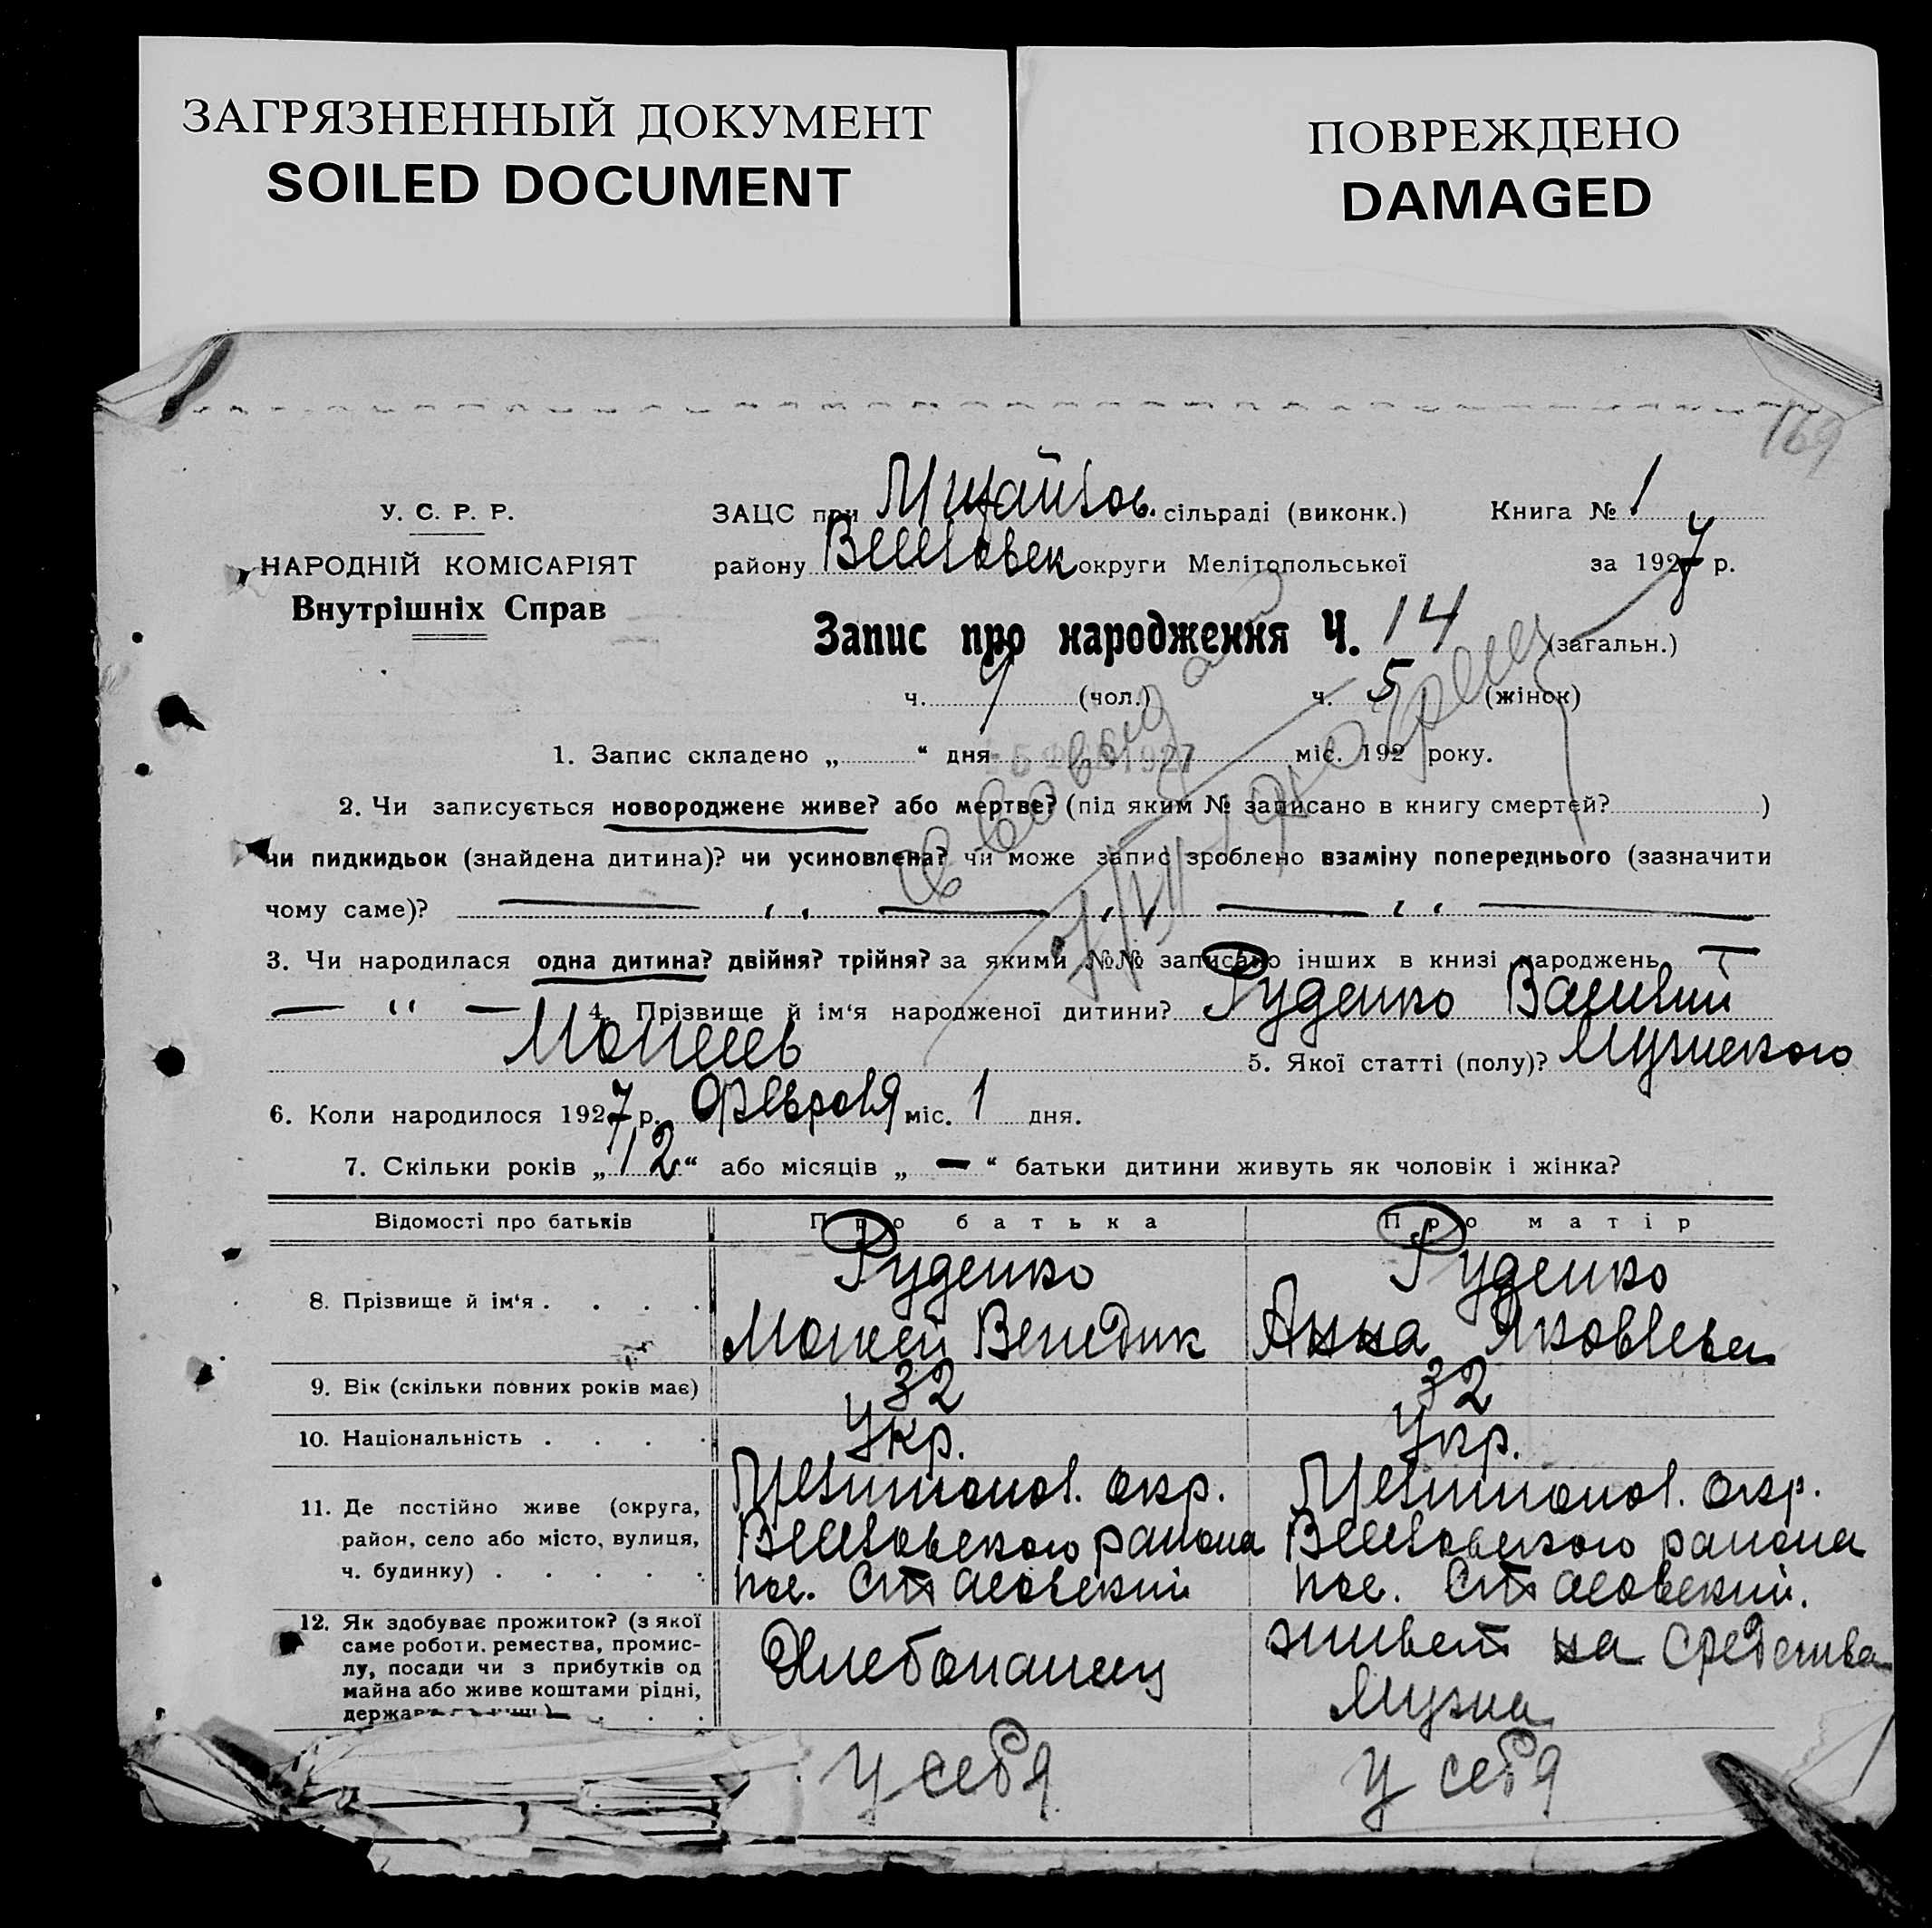 ЗАГРЯЗНЕННЫЙ ДОКУМЕНТ
SOILED DOCUMENT
ПОВРЕЖДЕНО
DAMAGED
169
У. С. Р. Р.
НАРОДНІЙ КОМІСАРІЯТ
Внутрішніх Справ
ЗАЦС при сільраді (виконк.) Книга № 1
району округи Мелітопольської за 1927 р.
Запис про народження Ч. 14 (загальн.)
ч. 9 (чол.) ч. 5 (жінок)
1. Запис складено „ “ дня 1927 міс. 192 року.
2. Чи записується новороджене живе? або мертве? (під яким № записано в книгу смертей? )
чи пидкидьок (знайдена дитина)? чи усиновлена? чи може запис зроблено взаміну попереднього (зазначити
чому саме)?
3. Чи народилася одна дитина? двійня? трійня? за якими №№ записано інших в книзі народжень
— " — 4. Прізвище й ім'я народженої дитини? Руденко Василий
Моисеев 5. Якої статті (полу)? Мужского
6. Коли народилося 1927 р. Февраля міс. 1 дня.
7. Скільки років „ 12 “ або місяців „ — “ батьки дитини живуть як чоловік і жінка?
Відомості про батьків Про батька Про матір
8. Прізвище й ім'я . . . . Руденко Руденко
Моисей Венедик Анна Яковлева
9. Вік (скільки повних років має) 32 32
10. Національність . . . . Укр. Укр.
11. Де постійно живе (округа, Мелитопол. окр. Мелитопол. окр.
район, село або місто, вулиця, Веселовского района Веселовского района
ч. будинку) . . . . . пос. Стасовский пос. Стасовский.
12. Як здобуває прожиток? (з якої
саме роботи, ремества, промис-
лу, посади чи з прибутків од
майна або живе коштами рідні,
Хлебопашец живет на средства
мужа
у себя у себя